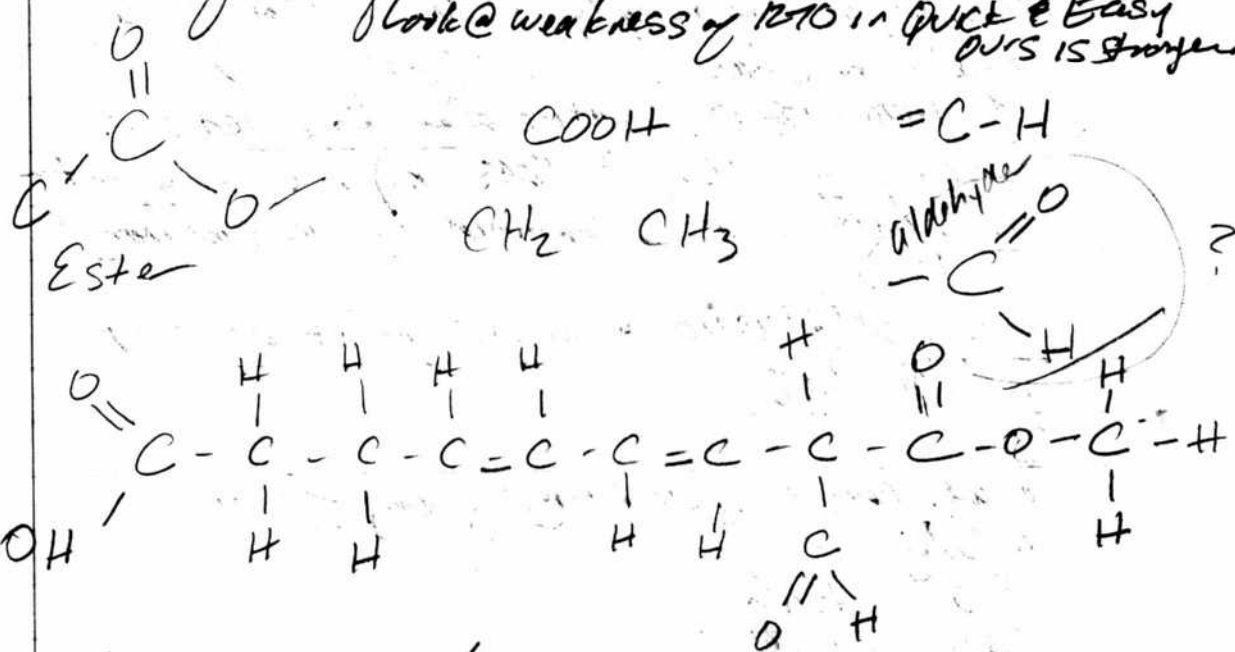 Look @ weakness of 1270 in Quick & Easy
ours is stronger
O
||
C
C O
Ester
COOH =C-H
CH2 CH3
aldehyde
O
- C
H
?
O H H H H H O H
C - C - C - C = C - C = C - C - C - O - C - H
OH H H H H C H
O H